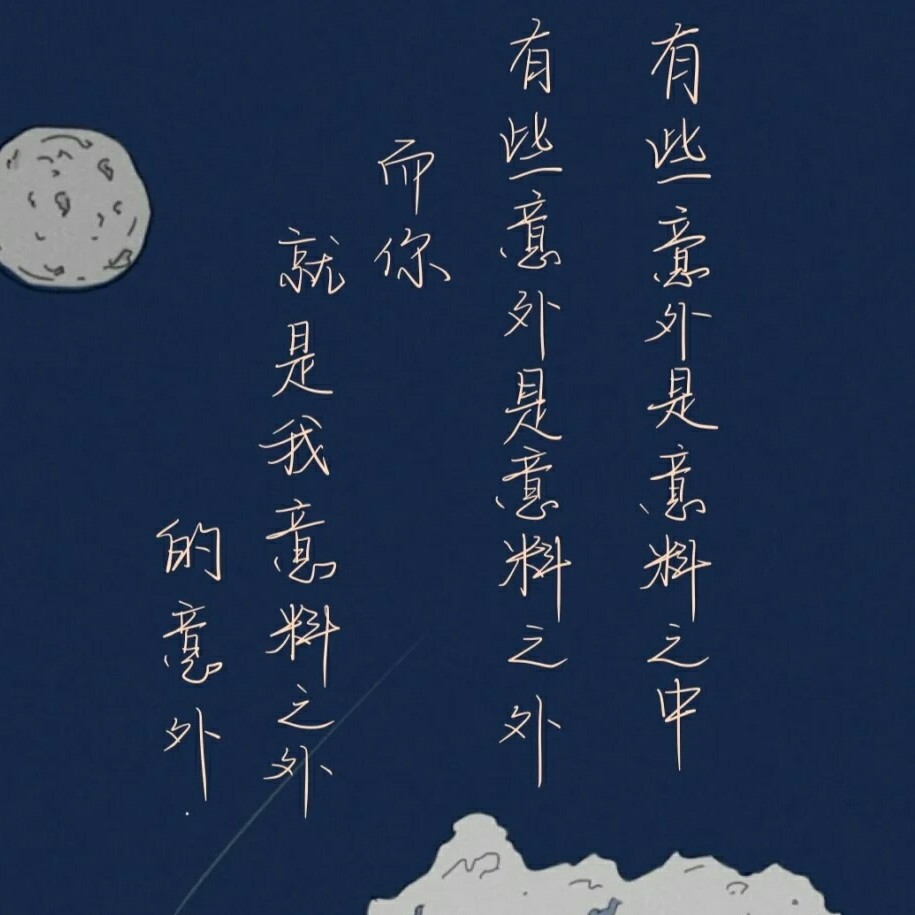 有些意外是意料之中
有些意外是意料之外
而你
就是我意料之外
的意外.